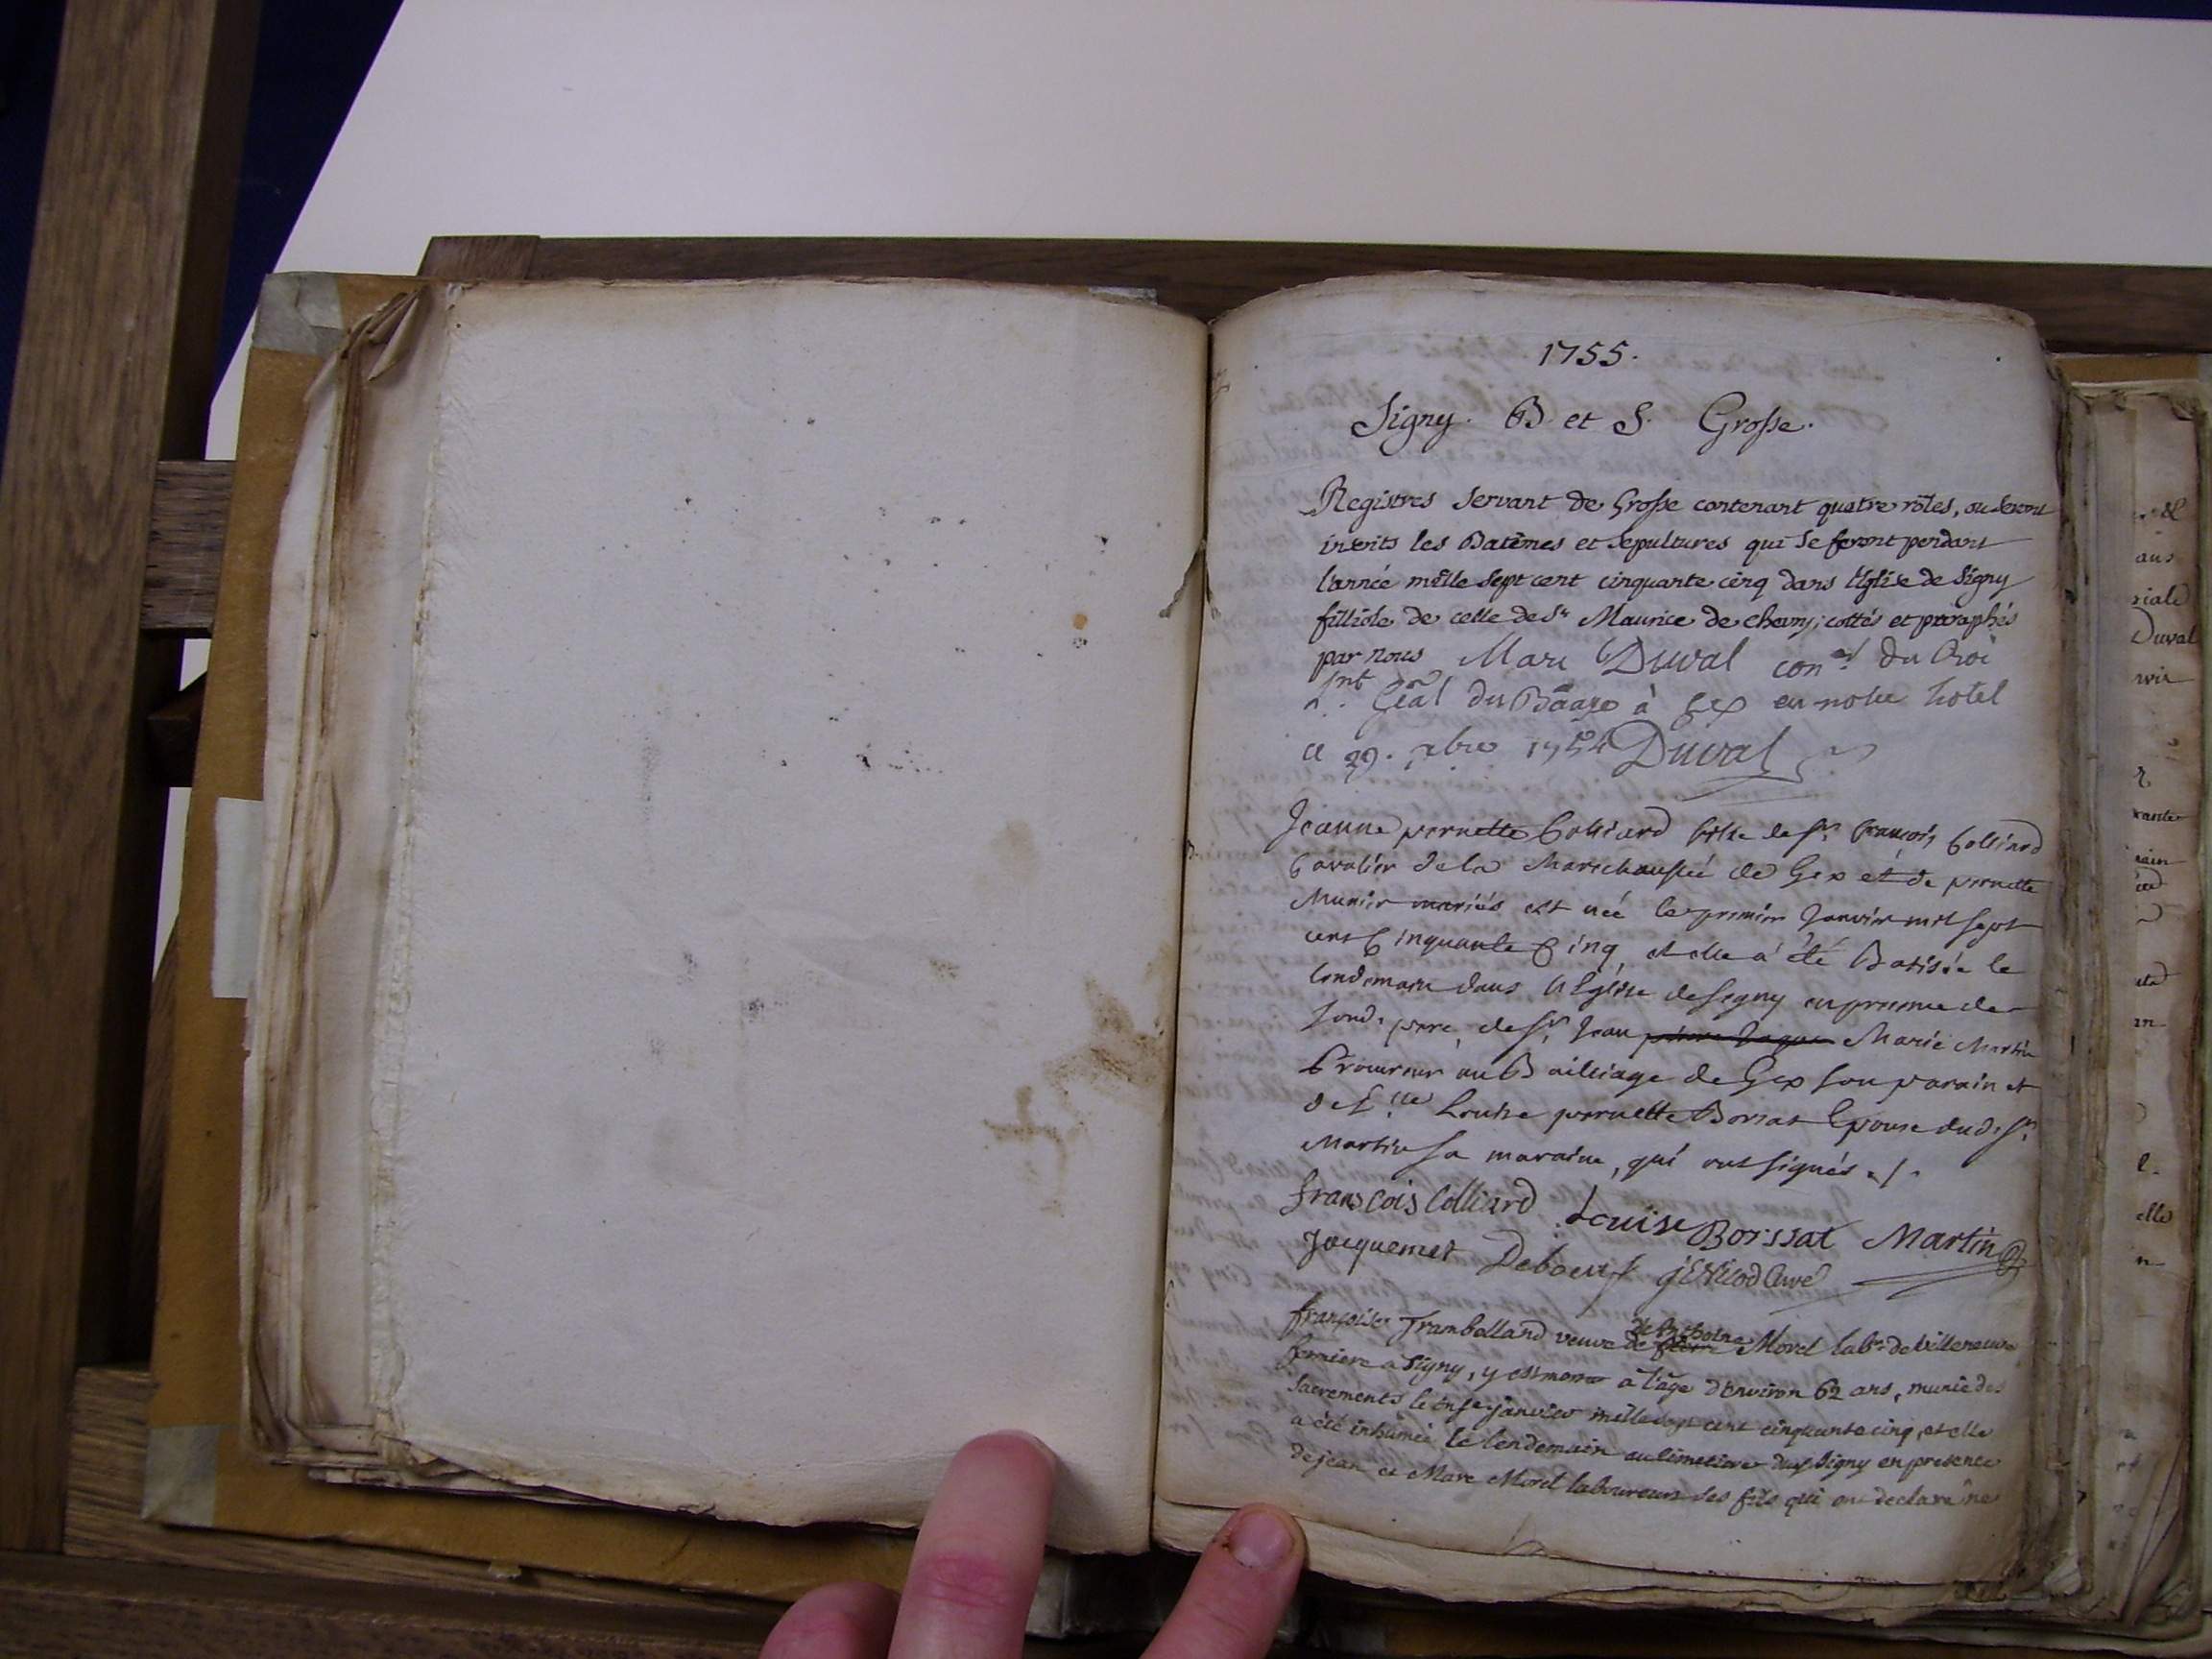 1755.
Signy. B et S. Grosse.
Registres servant de Grosse contenant quatre rôles, ou seront
inscrits les Batêmes et sepultures qui se feront pendant
l'année mille sept cent cinquante cinq dans l'Eglise de Signy
filliole de celle de St Maurice de chevry; cottés et paraphés
par nous Marc Duval coner du Roi
Lnt Géal du Baage à Gex en notre hotel
ce 29. xbre 1754 Duval
Jeanne pernette Colliard fille de sr françois Colliard
Cavalier de la Marechaussée de Gex et de pernette
Munier mariés est née le premier Janvier mil sept
cent Cinquante Cinq, et elle a été Batisée le
lendemain dans l'Eglise de Segny en presence de
sond. pere, de sr Jean Marie Martin
Procureur au Bailliage de Gex son parain et
de Dlle Louise pernette Borsat Epouse dud. sr
Martin sa maraine, qui ont signés ./.
frans cois Colliard Louise Borssat Martin
Jacquemet Deboeuf Nicod Curé
françoise Tramballand veuve de Morel labr. de villeneuve
fermiere a Signy, y est morte a l'âge d'environ 62 ans, munie des
sacrements le onse janvier mille sept cent cinquante cinq, et elle
a été inhumée le lendemain au cimetiere Signy en presence
de jean et Marc Morel laboureurs ses fils qui ont declaré ne
Duval